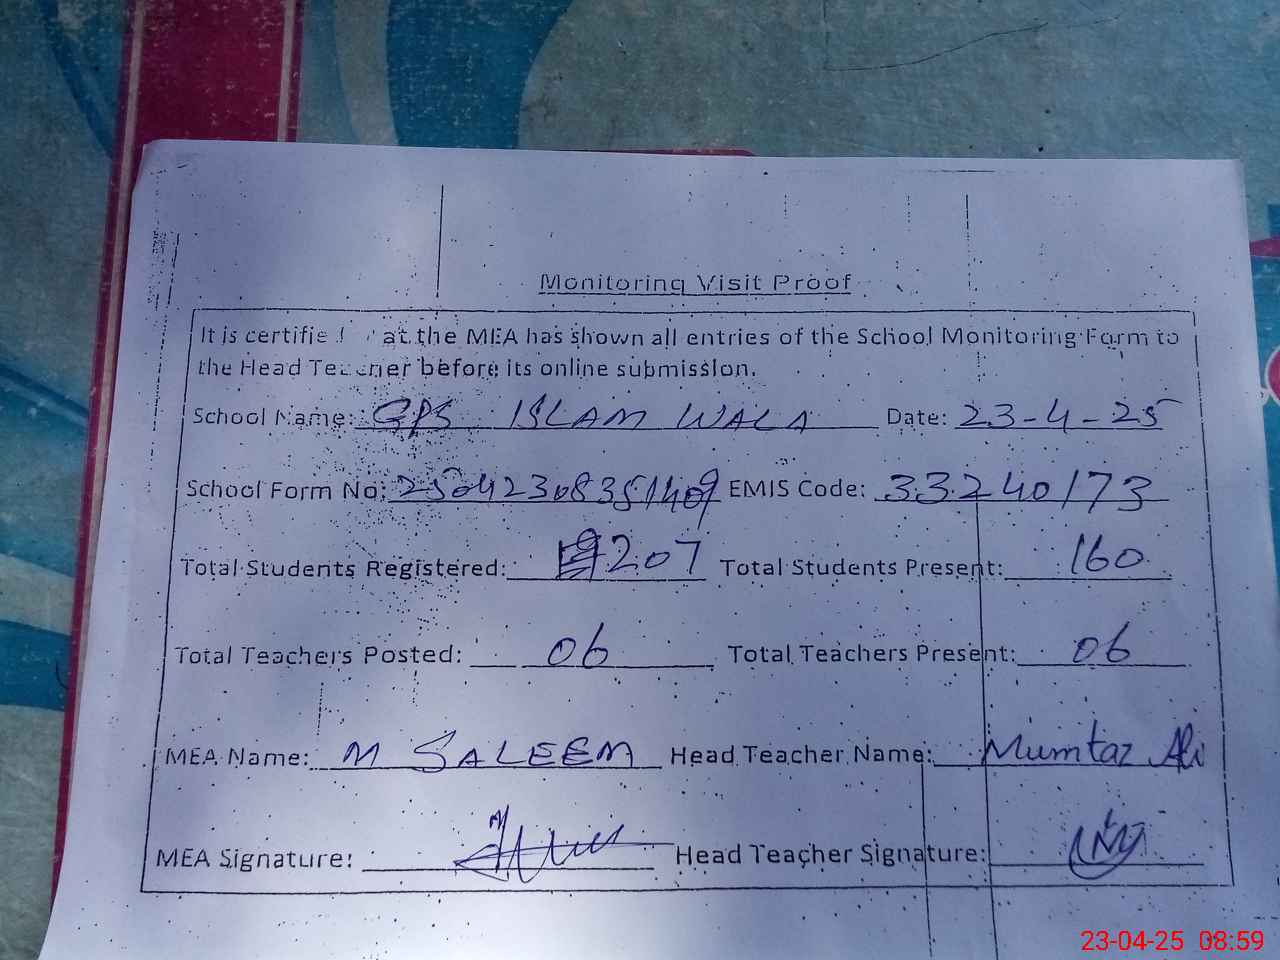 Monitoring Visit Proof
It is certified that the MEA has shown all entries of the School Monitoring Form to
the Head Teacher before its online submission.
School Name: GPS ISLAM WALA Date: 23-4-25
School Form No: 25042308351409 EMIS Code: 33240173
Total Students Registered: 207 Total Students Present: 160
Total Teachers Posted: 06 Total Teachers Present: 06
MEA Name: M SALEEM Head Teacher Name: Mumtaz Ali
MEA Signature: Head Teacher Signature:
23-04-25 08:59